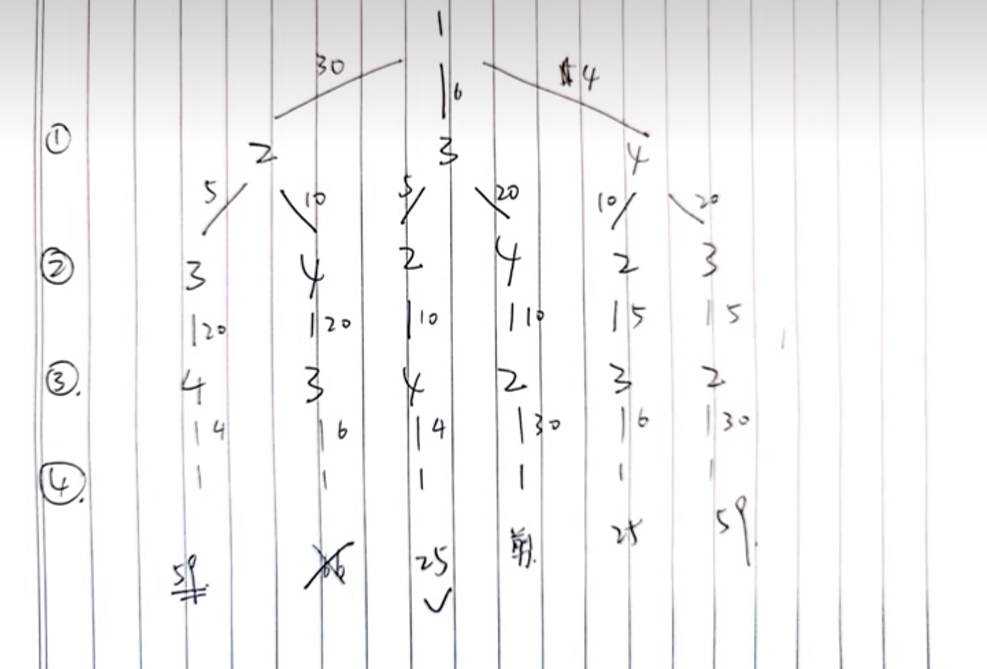 1
30 6 4
① 2 3 4
5 10 5 20 10 20
② 3 4 2 4 2 3
20 20 10 10 5 5
③. 4 3 4 2 3 2
4 6 4 30 6 30
④. 1 1 1 1 1 1
59. 66 25 剪. 25 59.